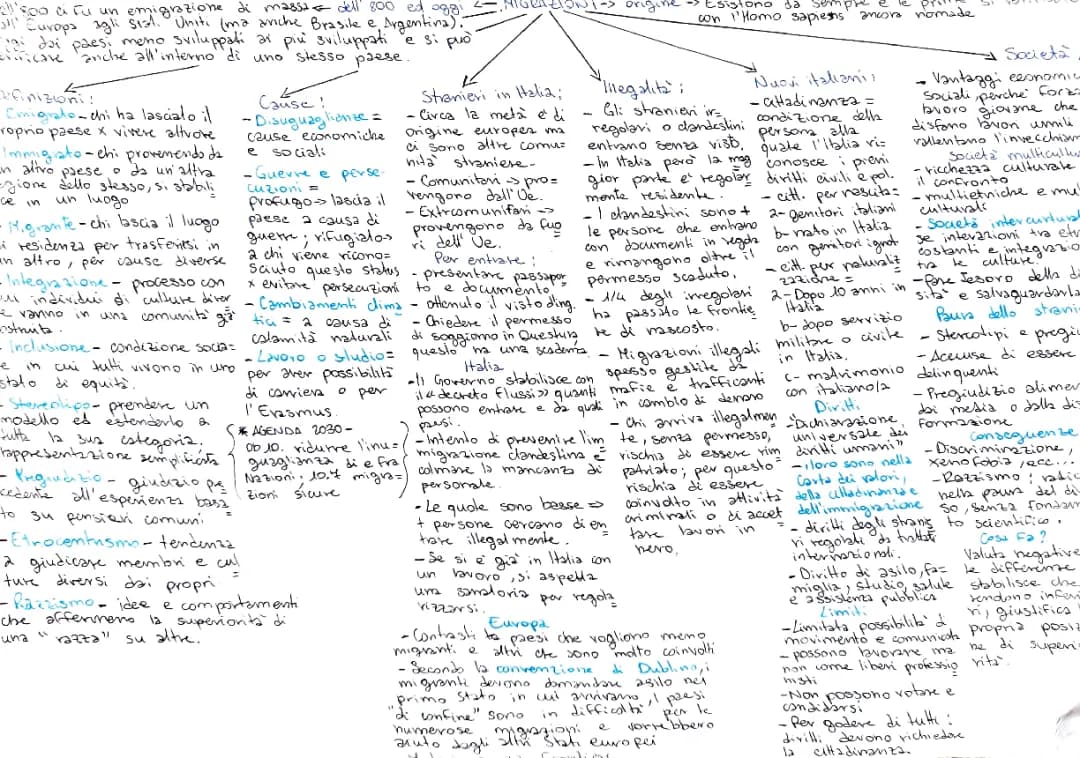 ell'800 ci fu un emigrazione di massa ← dell'800 ed oggi ← MIGRAZIONI → origine → Esistono da sempre e le prime si
all'Europa agli Stati Uniti (ma anche Brasile e Argentina).
con l'Homo sapiens ancora nomade
dai paesi meno sviluppati ai più sviluppati e si può
anche all'interno di uno stesso paese.
efinizioni:
Emigrato - chi ha lasciato il
roprio paese x vivere altrove
Immigrato - chi provenendo da
n altro paese o da un'altra
egione dello stesso, si stabili
ce in un luogo
- Migrante - chi lascia il luogo
i residenza per trasferirsi in
n altro, per cause diverse
- Integrazione - processo con
cui individui di culture diver
e vanno in una comunità già
ostruita.
- Inclusione - condizione socia=
e in cui tutti vivono in uno
stato di equità.
- Stereotipo - prendere un
modello ed estenderlo a
tutta la sua categoria.
rappresentazione semplificata
- Pregiudizio - giudizio pre
cedente all'esperienza basa
to su pensieri comuni
- Etnocentrismo - tendenza
a giudicare membri e cul=
ture diversi dai propri
- Razzismo - idee e comportamenti
che affermano la superiorità di
una "razza" su altre.
Cause:
- Disuguaglianze =
cause economiche
e sociali
- Guerre e perse-
cuzioni =
profugo → lascia il
paese a causa di
guerre; rifugiato →
a chi viene ricono=
sciuto questo status
x evitare persecuzioni
- Cambiamenti clima
tici = a causa di
calamità naturali
- Lavoro o studio =
per aver possibilità
di carriera o per
l'Erasmus.
* AGENDA 2030 -
ob.10. ridurre l'inu=
guaglianza di e fra
Nazioni, 10.7 migra=
zioni sicure
Stranieri in Italia:
- Circa la metà è di
origine europea ma
ci sono altre comu=
nità straniere.
- Comunitari → pro=
vengono dall'Ue.
- Extracomunitari →
provengono da fuo
ri dell'Ue.
Per entrare:
- presentare passapor
to e documento
- ottenuto il visto d'ing.
- Chiedere il permesso
di soggiorno in Questura
questo ha una scadenza
Italia
- Il Governo stabilisce con
il «decreto Flussi» quanti
possono entrare e da quali
paesi.
- Intento di prevenire l'im
migrazione clandestina e
colmare la mancanza di
personale.
- Le quote sono basse →
+ persone cercano di en
trare illegalmente.
- Se si è già in Italia con
un lavoro, si aspetta
una sanatoria per regola
rizzarsi.
Europa
- Contasti tra paesi che vogliono meno
migranti e altri che sono molto coinvolti
- Secondo la convenzione di Dublino, i
migranti devono domandare asilo nel
primo Stato in cui arrivano, i paesi
"di confine" sono in difficoltà per le
numerose migrazioni e vorrebbero
aiuto dagli altri Stati europei
Illegalità:
- Gli stranieri ir=
regolari o clandestini
entrano senza visto.
- In Italia però la mag
gior parte è regolar
mente residente.
- I clandestini sono +
le persone che entrano
con documenti in regola
e rimangono oltre il
permesso scaduto.
- 1/4 degli irregolari
ha passato le frontie
re di nascosto.
- Migrazioni illegali
spesso gestite da
mafie e trafficanti
in cambio di denaro
- Chi arriva illegalmen
te, senza permesso,
rischia di essere rim
patriato; per questo
rischia di essere
coinvolto in attività
criminali o di accet
tare lavori in
nero.
Nuovi italiani:
- cittadinanza =
condizione della
persona alla
quale l'Italia ri=
conosce i pieni
diritti civili e pol.
- citt. per nascita:
a- genitori italiani
b- nato in Italia
con genitori ignoti
- citt. per naturaliz
zazione =
a- Dopo 10 anni in
Italia
b- dopo servizio
militare o civile
in Italia.
c- matrimonio
con italiano/a
Diritti
- "Dichiarazione
universale dei
diritti umani"
- i loro sono nella
Carta dei valori,
della cittadinanza e
dell'immigrazione
- diritti degli stranie
ri regolati da trattati
internazionali.
- Diritto di asilo, fa=
miglia, studio, salute
e assistenza pubblica
Limiti
- Limitata possibilità di
movimento e comunicati
- possono lavorare ma
non come liberi professio
nisti
- Non possono votare e
candidarsi
- Per godere di tutti i
diritti devono richiedere
la cittadinanza.
Società
- Vantaggi economic
sociali perché forza
lavoro giovane che
disfano lavori umili
rallentano l'invecchiam
Società multicultu
- ricchezza culturale
il confronto
- multietniche e mul
culturali
- Società intercultural
se interazioni tra etn
costanti e integrazio
tra le culture.
- Fare tesoro della di
sità e salvaguardarla
Paura dello strani
- Stereotipi e pregiu
- Accuse di essere
delinquenti
- Pregiudizio alimen
dai media o dalla dis
formazione
Conseguenze
- Discriminazione,
xenofobia, ecc...
- Razzismo: radic
nella paura del di
so, senza fondam
to scientifico.
Cosa fa?
Valuta negative
le differenze
stabilisce che
rendono inferi
ri, giustifica l
propria posiz
ne di superio
rità.